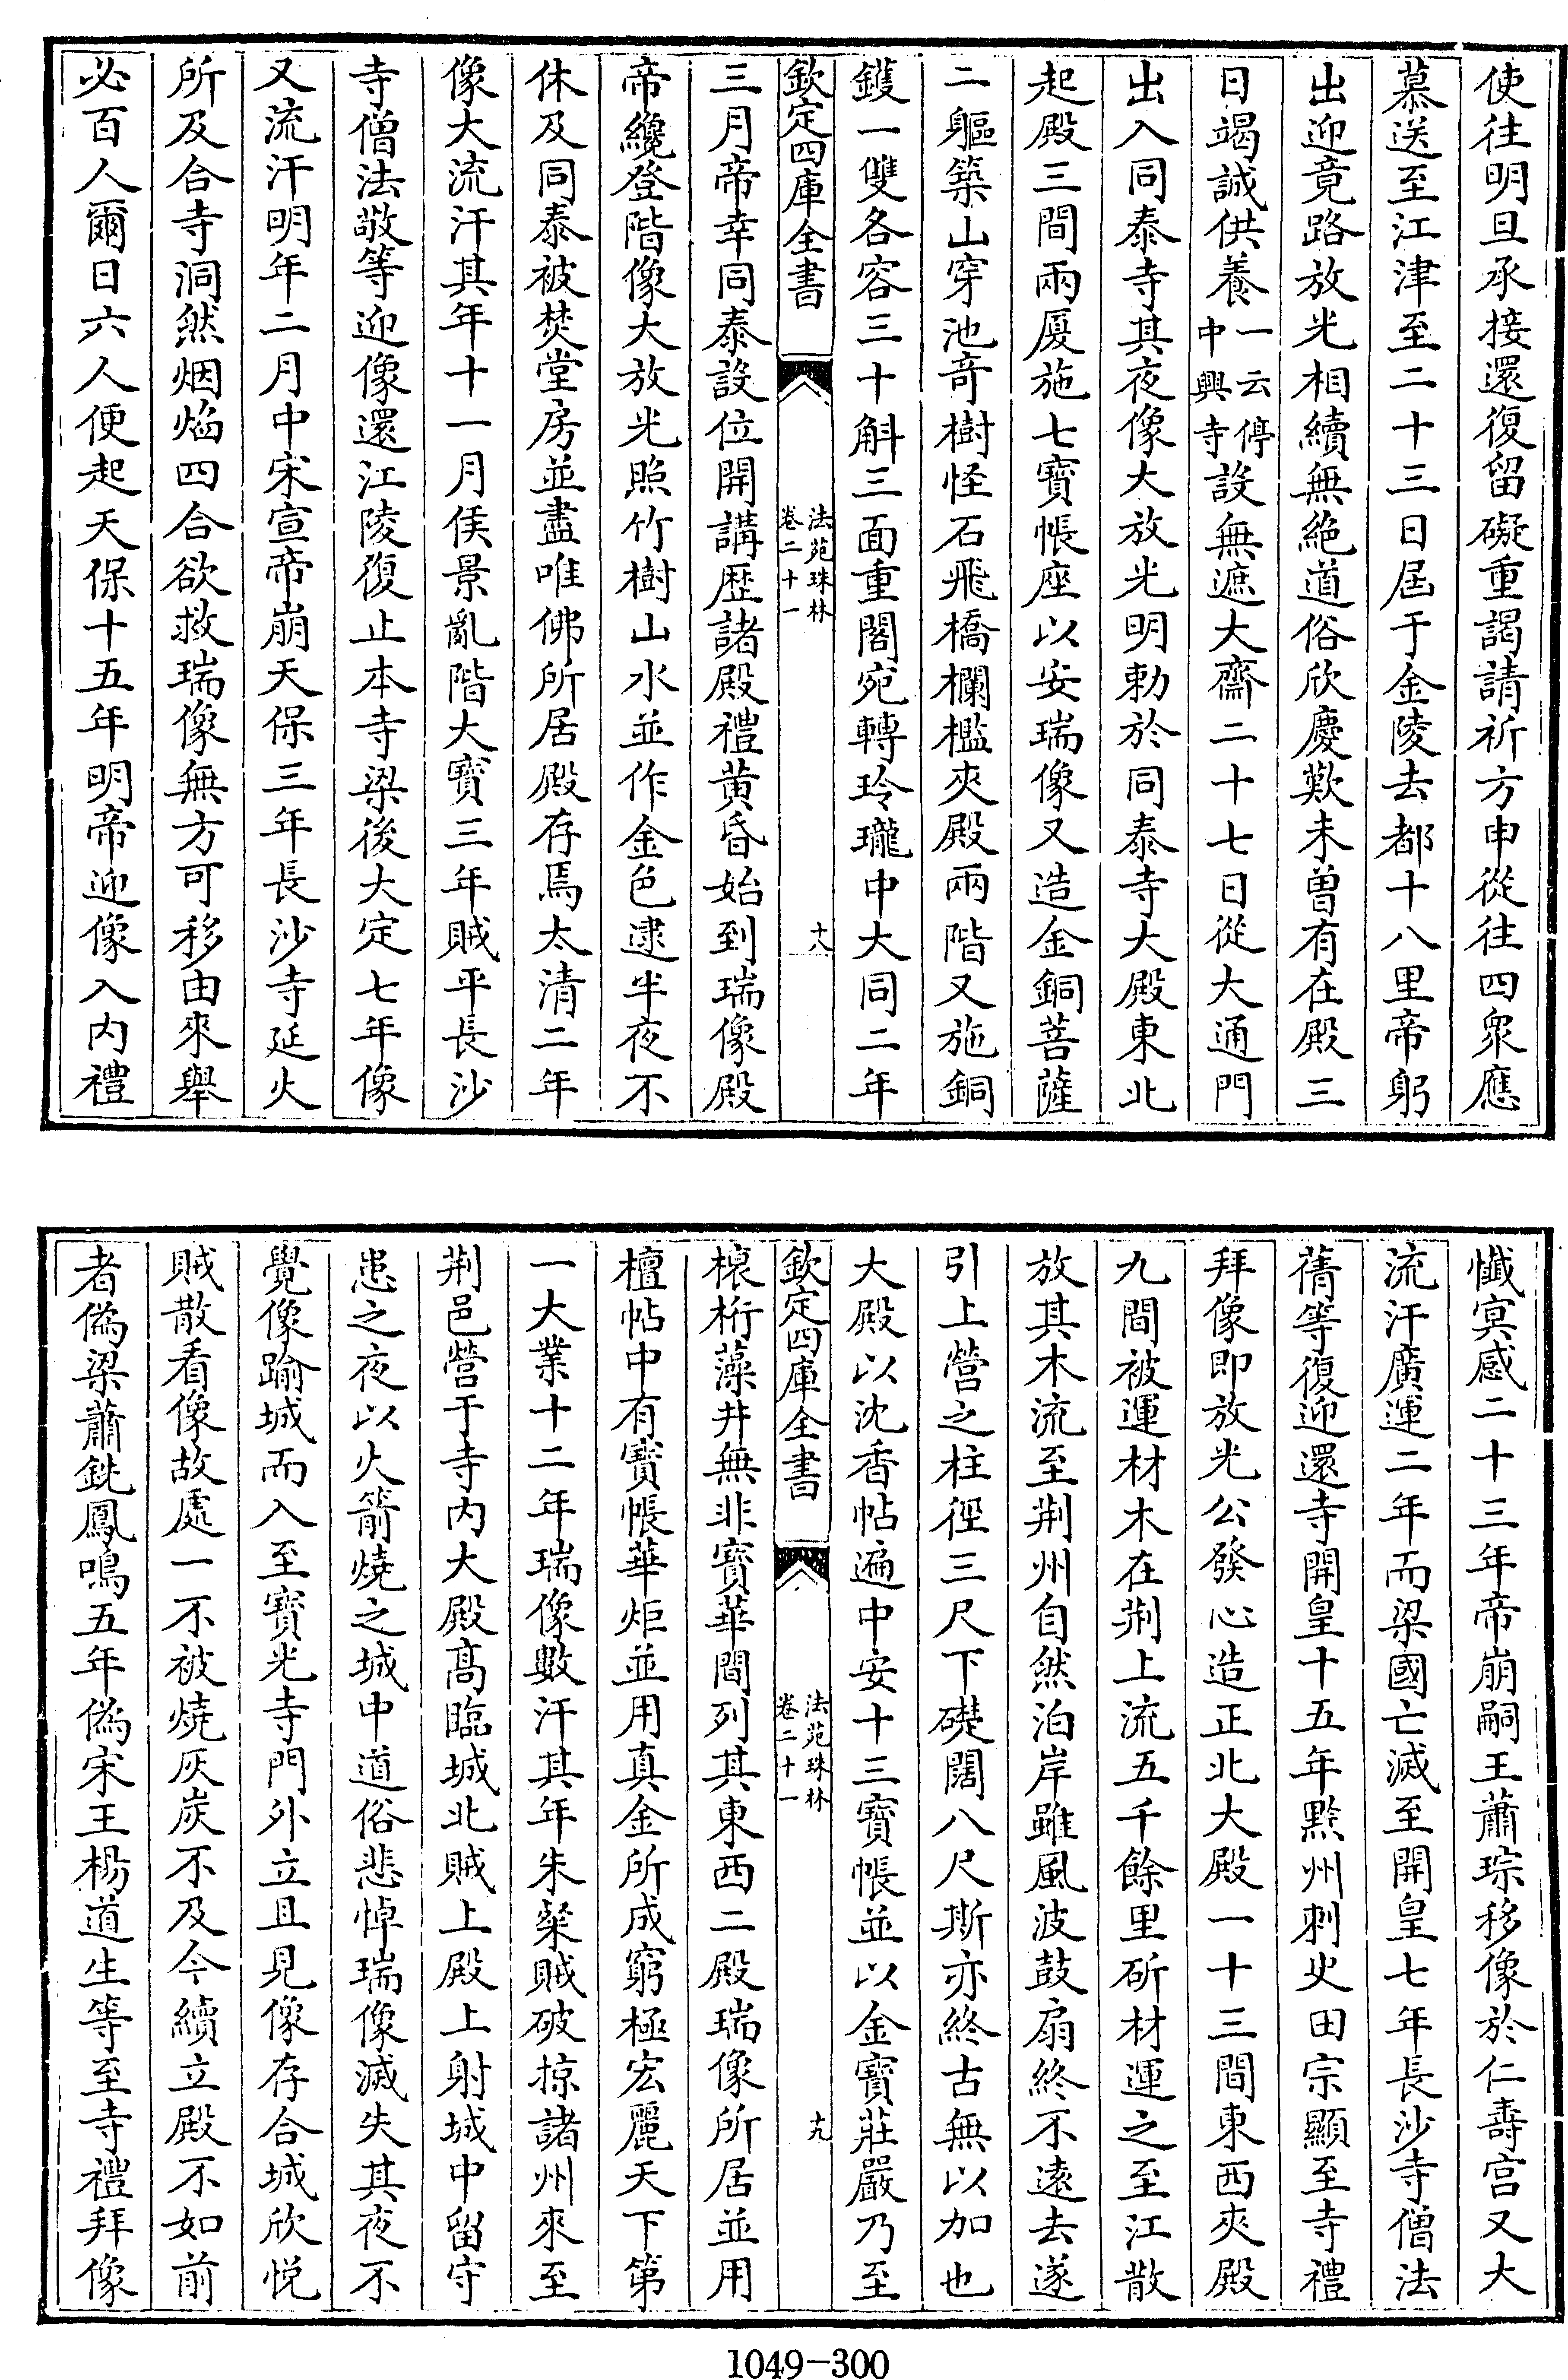 使往明旦承接還復留礙重謁請祈方申從往四衆應
慕送至江津至二十三日屆于金陵去都十八里帝躬
出迎竟路放光相續無絶道俗欣慶歎未曽有在殿三
日竭誠供養一云停中興寺設無遮大齋二十七日從大通門
出入同泰寺其夜像大放光明勅於同泰寺大殿東北
起殿三間兩厦施七寶帳座以安瑞像又造金銅菩薩
二軀築山穿池竒樹怪石飛橋欄檻夾殿兩階又施銅
鑊一雙各容三十斛三面重閣宛轉玲瓏中大同二年
欽定四庫全書
法苑珠林
卷二十一
十八
三月帝幸同泰設位開講歴諸殿禮黄昏始到瑞像殿
帝纔登階像大放光照竹樹山水並作金色逮半夜不
休及同泰被焚堂房並盡唯佛所居殿存焉太清二年
像大流汗其年十一月侯景亂階大寶三年賊平長沙
寺僧法敬等迎像還江陵復止本寺梁後大定七年像
又流汗明年二月中宋宣帝崩天保三年長沙寺延火
所及合寺洞然烟焰四合欲救瑞像無方可移由來舉
必百人爾日六人便起天保十五年明帝迎像入内禮
懺冥感二十三年帝崩嗣王蕭琮移像於仁壽宫又大
流汗廣運二年而梁國亡滅至開皇七年長沙寺僧法
蒨等復迎還寺開皇十五年黙州刺史田宗顯至寺禮
拜像即放光公發心造正北大殿一十三間東西夾殿
九間被運材木在荆上流五千餘里斫材運之至江散
放其木流至荆州自然泊岸雖風波鼓扇終不遠去遂
引上營之柱徑三尺下礎闊八尺斯亦終古無以加也
大殿以沈香帖遍中安十三寶帳並以金寶莊嚴乃至
欽定四庫全書
法苑珠林
卷二十一
十九
榱桁藻井無非寶華間列其東西二殿瑞像所居並用
檀帖中有寶帳華炬並用真金所成窮極宏麗天下第
一大業十二年瑞像數汗其年朱粲賊破掠諸州來至
荆邑營于寺内大殿髙臨城北賊上殿上射城中留守
患之夜以火箭燒之城中道俗悲悼瑞像滅失其夜不
覺像踰城而入至寶光寺門外立且見像存合城欣悦
賊散看像故處一不被燒灰炭不及今續立殿不如前
者偽梁蕭銑鳳鳴五年偽宋王楊道生等至寺禮拜像
1049-300